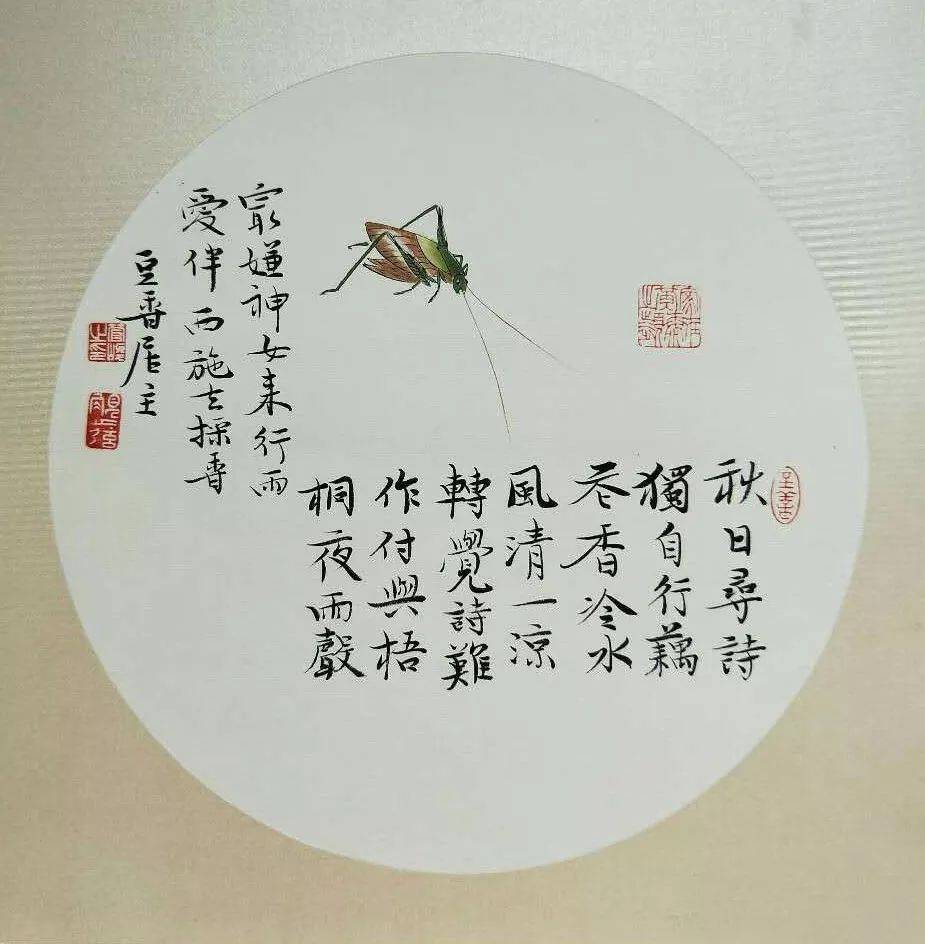 秋日尋詩
獨自行藕
花香冷水
風清一涼
轉覺詩難
作付與梧
桐夜雨聲
㝡嫌神女来行雨
愛伴西施去採香
豆香居主
至善